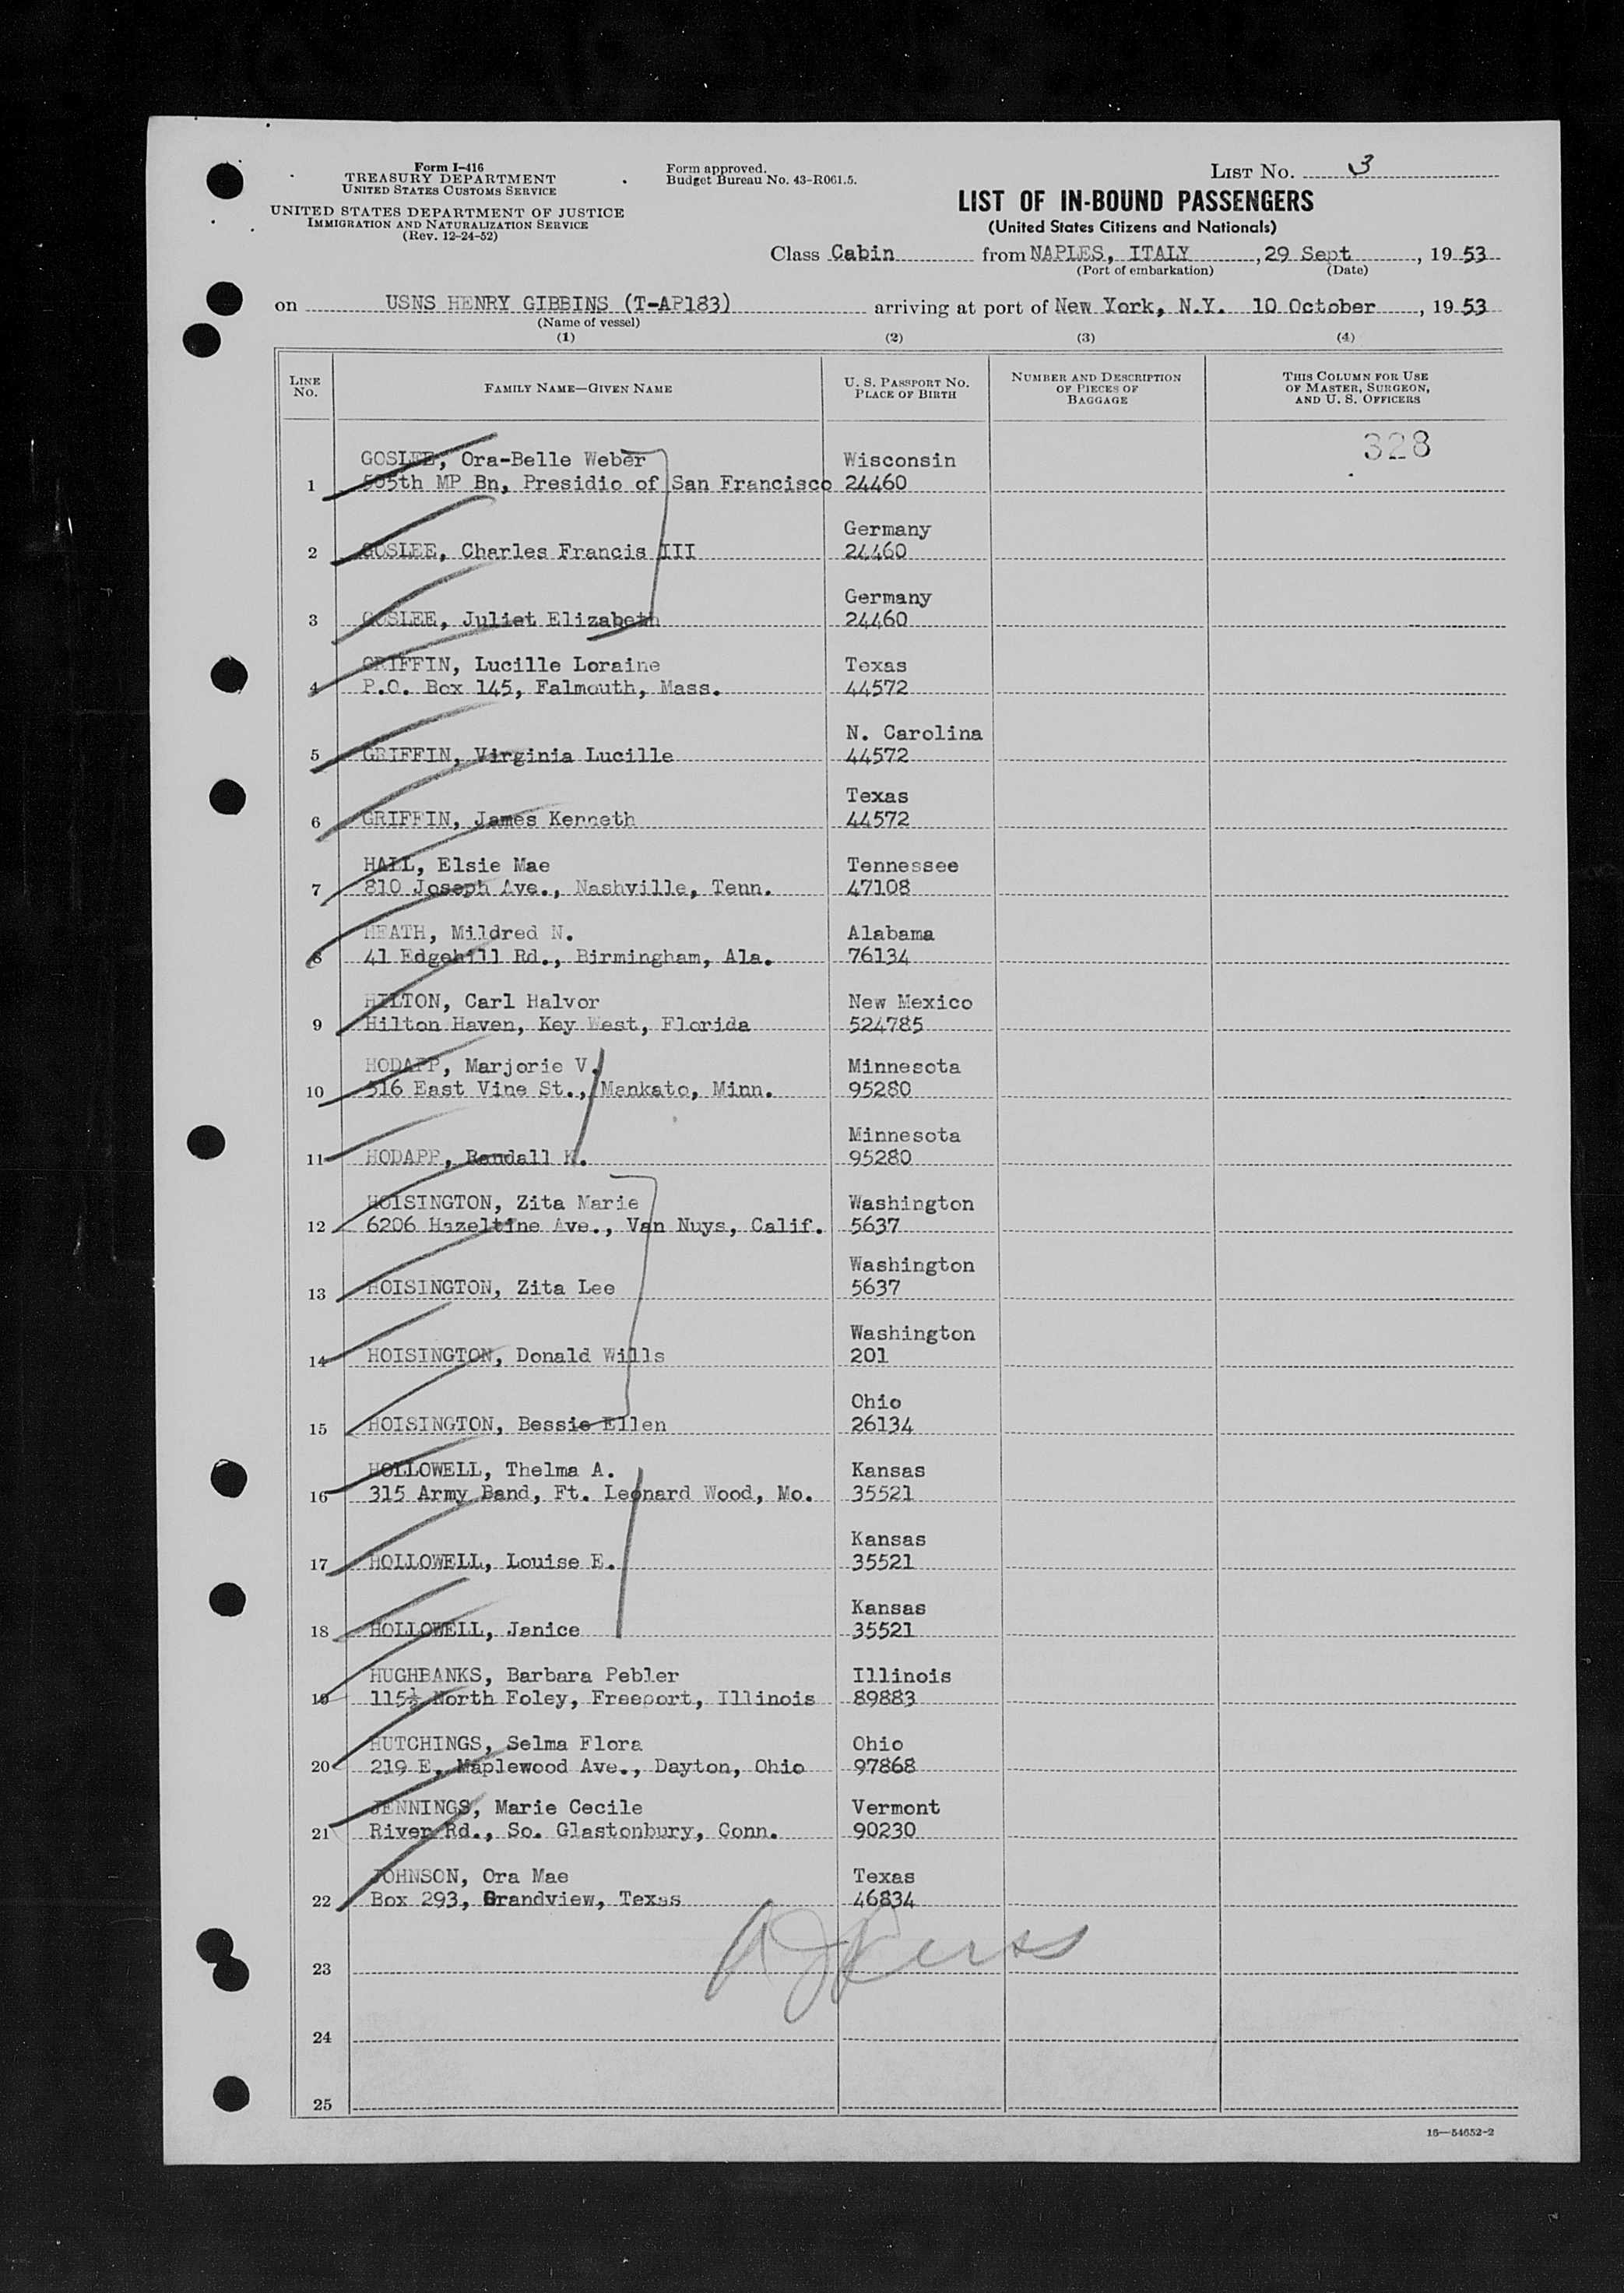 Form I-416
TREASURY DEPARTMENT
UNITED STATES CUSTOMS SERVICE
UNITED STATES DEPARTMENT OF JUSTICE
IMMIGRATION AND NATURALIZATION SERVICE
(Rev. 12-24-52)
Form approved.
Budget Bureau No. 43-R061.5.
LIST NO. 3
LIST OF IN-BOUND PASSENGERS
(United States Citizens and Nationals)
Class Cabin from NAPLES, ITALY, 29 Sept, 1953
(Port of embarkation) (Date)
on USNS HENRY GIBBINS (T-AP183) arriving at port of New York, N.Y. 10 October, 1953
(Name of vessel)
(1) (2) (3) (4)
LINE NO. FAMILY NAME—GIVEN NAME U. S. PASSPORT NO. PLACE OF BIRTH NUMBER AND DESCRIPTION OF PIECES OF BAGGAGE THIS COLUMN FOR USE OF MASTER, SURGEON, AND U. S. OFFICERS
328
GOSLEE, Ora-Belle Weber Wisconsin
1 505th MP Bn, Presidio of San Francisco 24460
Germany
2 GOSLEE, Charles Francis III 24460
Germany
3 GOSLEE, Juliet Elizabeth 24460
GRIFFIN, Lucille Loraine Texas
4 P.O. Box 145, Falmouth, Mass. 44572
N. Carolina
5 GRIFFIN, Virginia Lucille 44572
Texas
6 GRIFFIN, James Kenneth 44572
HALL, Elsie Mae Tennessee
7 810 Joseph Ave., Nashville, Tenn. 47108
HEATH, Mildred N. Alabama
8 41 Edgehill Rd., Birmingham, Ala. 76134
HILTON, Carl Halvor New Mexico
9 Hilton Haven, Key West, Florida 524785
HODAPP, Marjorie V. Minnesota
10 316 East Vine St., Mankato, Minn. 95280
Minnesota
11 HODAPP, Randall K. 95280
HOISINGTON, Zita Marie Washington
12 6206 Hazeltine Ave., Van Nuys, Calif. 5637
Washington
13 HOISINGTON, Zita Lee 5637
Washington
14 HOISINGTON, Donald Wills 201
Ohio
15 HOISINGTON, Bessie Ellen 26134
HOLLOWELL, Thelma A. Kansas
16 315 Army Band, Ft. Leonard Wood, Mo. 35521
Kansas
17 HOLLOWELL, Louise E. 35521
Kansas
18 HOLLOWELL, Janice 35521
HUGHBANKS, Barbara Pebler Illinois
19 115½ North Foley, Freeport, Illinois 89883
HUTCHINGS, Selma Flora Ohio
20 219 E. Maplewood Ave., Dayton, Ohio 97868
JENNINGS, Marie Cecile Vermont
21 River Rd., So. Glastonbury, Conn. 90230
JOHNSON, Ora Mae Texas
22 Box 293, Grandview, Texas 46834
23
24
25
16—54652-2